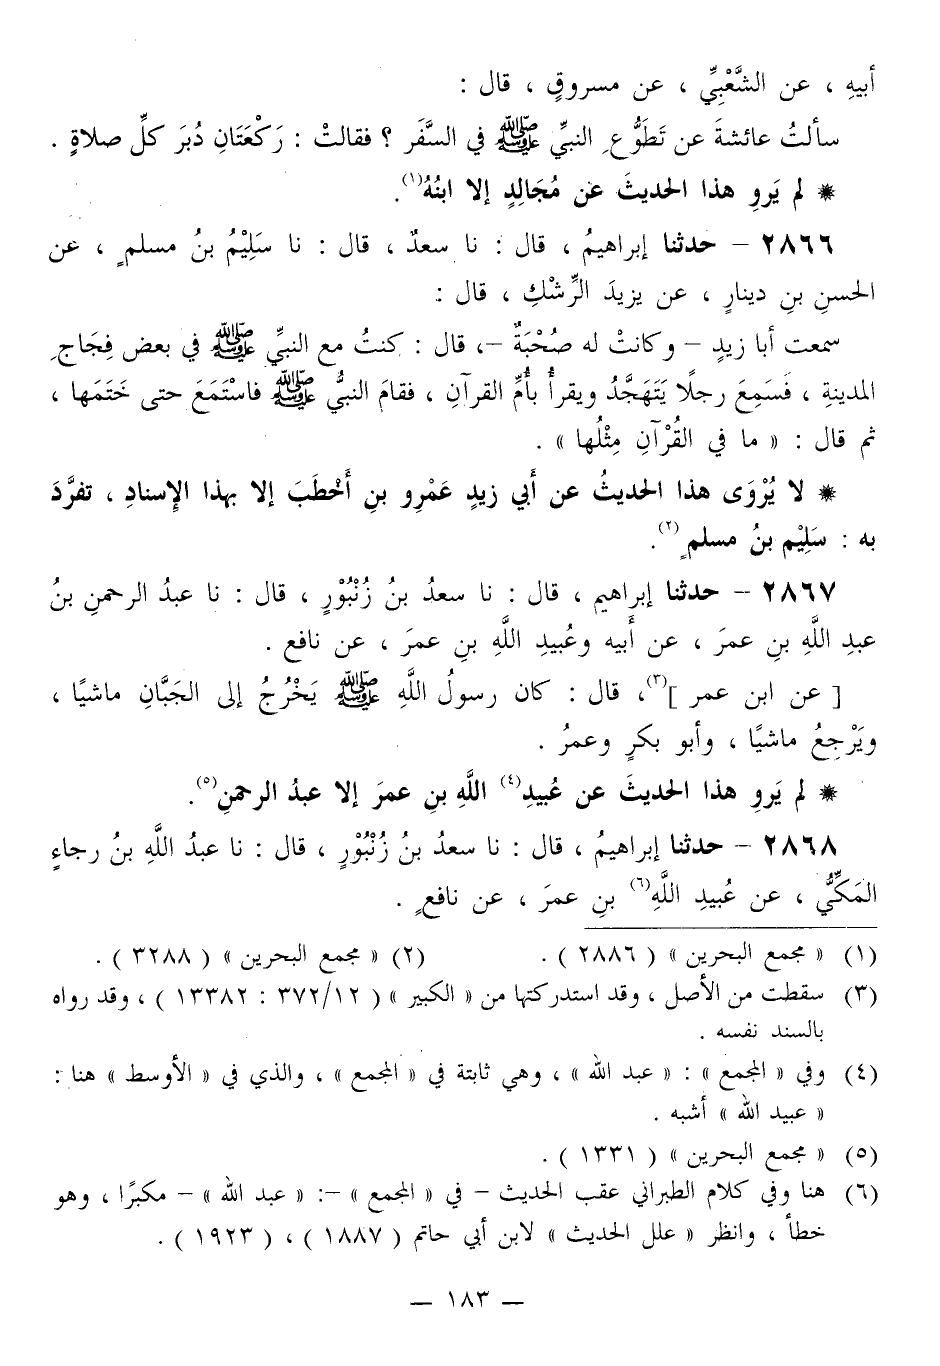 أبيهِ ، عن الشَّعْبِيِّ ، عن مسروقٍ ، قال :
سألتُ عائشةَ عن تَطَوُّعِ النبيِّ ﷺ في السَّفَر ؟ فقالتْ : رَكْعَتَانِ دُبَرَ كلِّ صلاةٍ .
* لم يَروِ هذا الحديثَ عن مُجَالِدٍ إلا ابنُهُ(١).
٢٨٦٦ – حدثنا إبراهيمُ ، قال : نا سعدٌ ، قال : نا سَلِيْمُ بنُ مسلمٍ ، عن
الحسنِ بنِ دينارٍ ، عن يزيدَ الرِّشْكِ ، قال :
سمعت أبا زيدٍ – وكانتْ له صُحْبَةٌ –، قال : كنتُ مع النبيِّ ﷺ في بعض فِجَاجِ
المدينةِ ، فَسَمِعَ رجلًا يَتَهَجَّدُ ويقرأُ بأُمِّ القرآنِ ، فقامَ النبيُّ ﷺ فاسْتَمَعَ حتى خَتَمَها ،
ثم قال : « ما في القُرْآنِ مِثْلُها » .
* لا يُرْوَى هذا الحديثُ عن أَبي زيدٍ عَمْرِو بنِ أَخْطَبَ إلا بهذا الإِسنادِ ، تفرَّدَ
به : سَلِيْم بنُ مسلمٍ(٢).
٢٨٦٧ – حدثنا إبراهيم ، قال : نا سعدُ بنُ زُنْبُوْرٍ ، قال : نا عبدُ الرحمنِ بنُ
عبدِ اللَّهِ بنِ عمرَ ، عن أَبيه وعُبيدِ اللَّهِ بنِ عمرَ ، عن نافع .
[ عن ابن عمر ](٣)، قال : كان رسولُ اللَّهِ ﷺ يَخْرُجُ إلى الجَبَّانِ ماشيًا ،
ويَرْجِعُ ماشيًا ، وأبو بكرٍ وعمرُ .
* لم يَروِ هذا الحديثَ عن عُبيدِ(٤) اللَّهِ بنِ عمرَ إلا عبدُ الرحمنِ(٥).
٢٨٦٨ – حدثنا إبراهيمُ ، قال : نا سعدُ بنُ زُنْبُوْرٍ ، قال : نا عبدُ اللَّهِ بنُ رجاءٍ
المَكِّيُّ ، عن عُبيدِ اللَّهِ(٦) بنِ عمرَ ، عن نافعٍ .
(١) « مجمع البحرين » ( ٢٨٨٦ ) . (٢) « مجمع البحرين » ( ٣٢٨٨ ) .
(٣) سقطت من الأصل ، وقد استدركتها من « الكبير » ( ٣٧٢/١٢ : ١٣٣٨٢ ) ، وقد رواه
بالسند نفسه .
(٤) وفي « المجمع » : « عبد الله » ، وهي ثابتة في « المجمع » ، والذي في « الأوسط » هنا :
« عبيد الله » أشبه .
(٥) « مجمع البحرين » ( ١٣٣١ ) .
(٦) هنا وفي كلام الطبراني عقب الحديث – في « المجمع » –: « عبد الله » – مكبرًا ، وهو
خطأ ، وانظر « علل الحديث » لابن أبي حاتم ( ١٨٨٧ ) ، ( ١٩٢٣ ) .
— ١٨٣ —